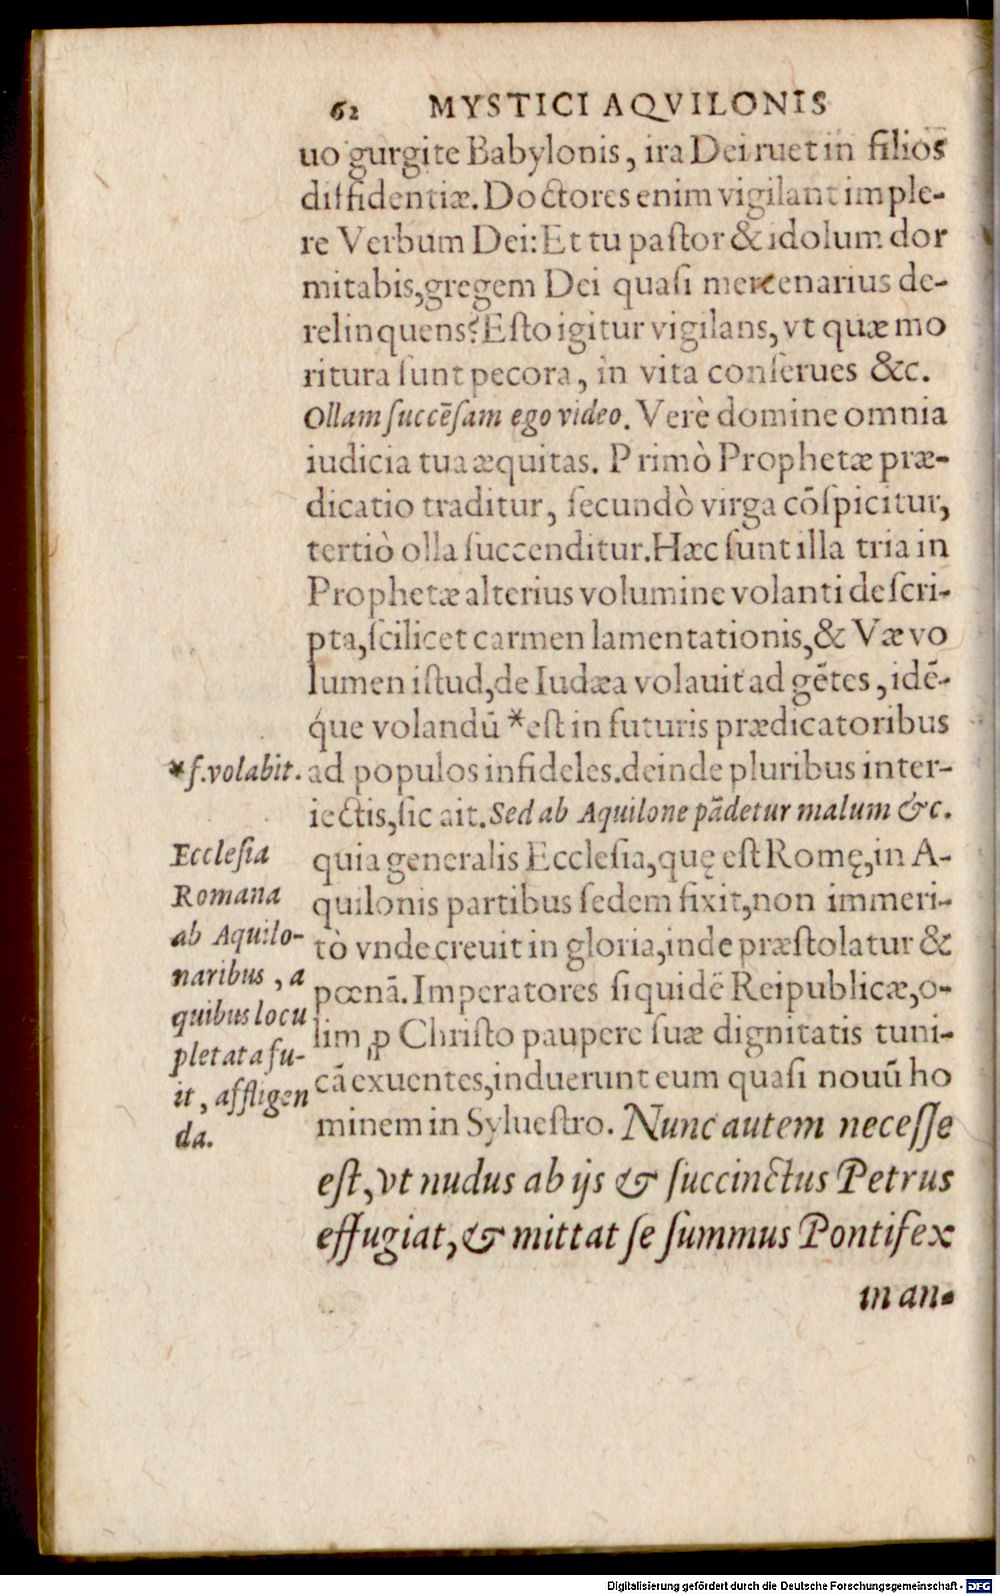 62 MYSTICI AQVILONIS
uo gurgite Babylonis, ira Dei ruet in filios
diſfidentiæ. Doctores enim vigilant imple-
re Verbum Dei: Et tu paſtor & idolum dor
mitabis, gregem Dei quaſi mercenarius de-
relinquens? Eſto igitur vigilans, vt quæ mo
ritura ſunt pecora, in vita conſerues &c.
Ollam ſuccēſam ego video. Verè domine omnia
iudicia tua æquitas. Primò Prophetæ præ-
dicatio traditur, ſecundò virga cōſpicitur,
tertiò olla ſuccenditur. Hæc ſunt illa tria in
Prophetæ alterius volumine volanti deſcri-
pta, ſcilicet carmen lamentationis, & Væ vo
lumen iſtud, de Iudæa volauit ad gētes, idē-
q́ue volandū *eſt in futuris prædicatoribus
*f. volabit.
ad populos infideles. deinde pluribus inter-
iectis, ſic ait. Sed ab Aquilone pādetur malum &c.
quia generalis Eccleſia, quę eſt Romę, in A-
quilonis partibus ſedem fixit, non immeri-
tò vnde creuit in gloria, inde præſtolatur &
pœnā. Imperatores ſiquidē Reipublicæ, o-
lim ꝓ Chriſto paupere ſuæ dignitatis tuni-
cā exuentes, induerunt eum quaſi nouū ho
minem in Sylueſtro. Nunc autem neceſſe
eſt, vt nudus ab ijs & ſuccinctus Petrus
effugiat, & mittat ſe ſummus Pontifex
in an-
Eccleſia
Romana
ab Aquilo-
naribus, a
quibus locu
pletata fu-
it, affligen
da.
Digitalisierung gefördert durch die Deutsche Forschungsgemeinschaft - DFG